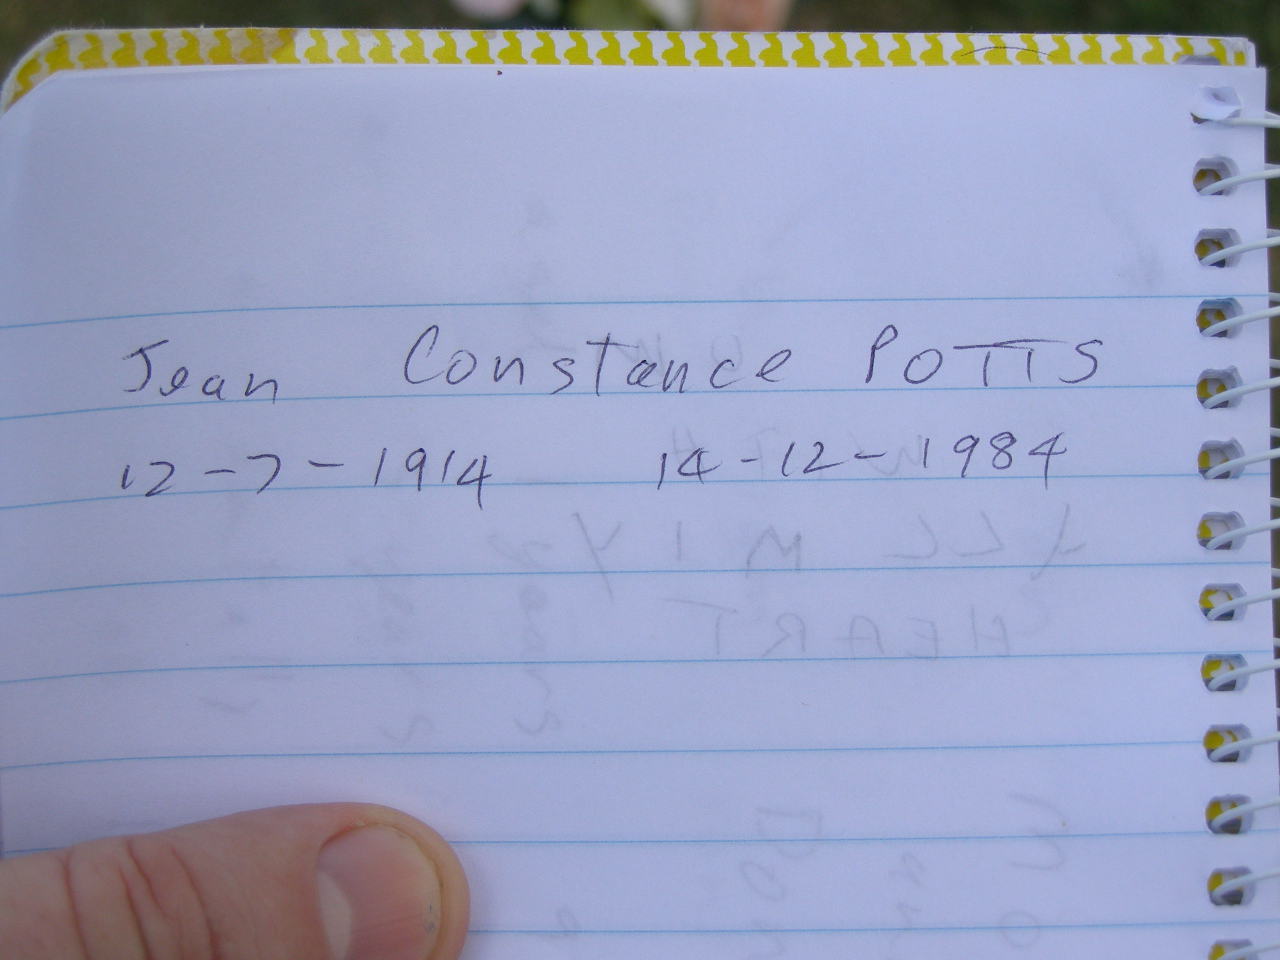 Jean Constance POTTS
12-7-1914 14-12-1984